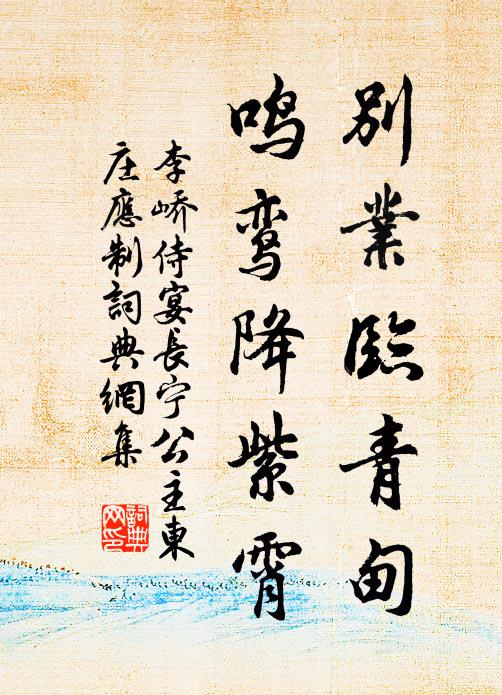 别業臨青甸
鸣鸾降紫霄
李峤侍宴長宁公主東
庄應制詞典網集
詞典
网印